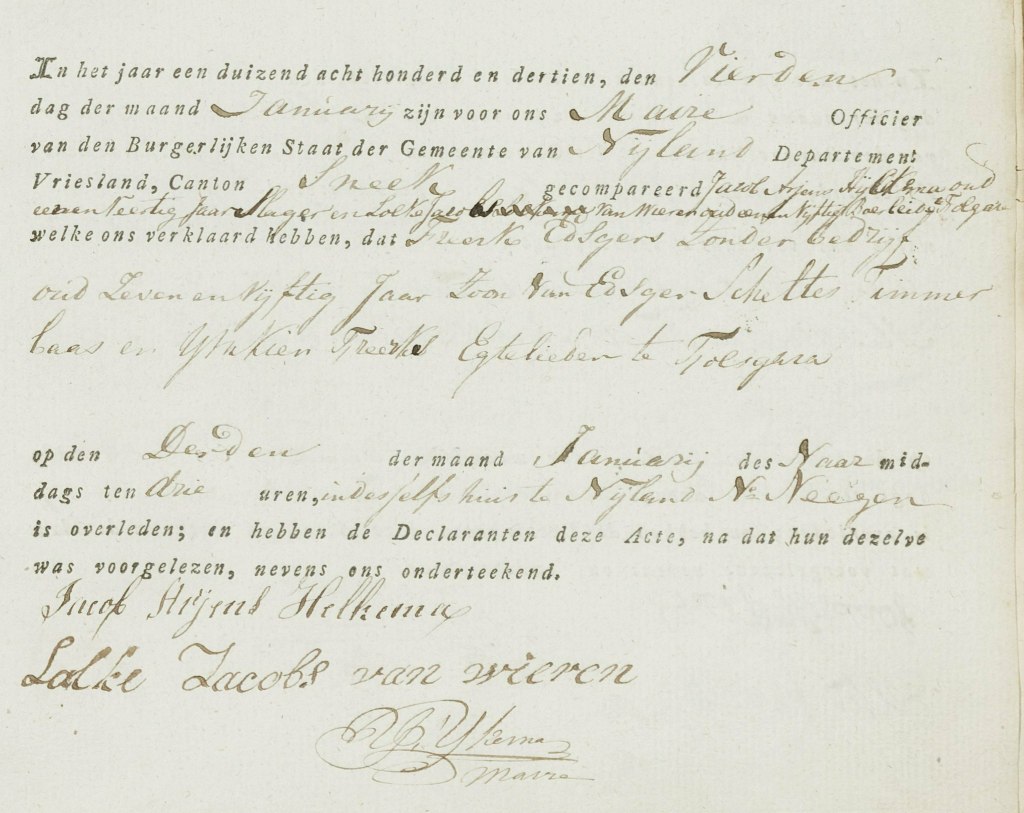 In het jaar een duizend acht honderd en dertien, den Vierden
dag der maand Januarij zijn voor ons Maire Officier
van den Burgerlijken Staat der Gemeente van Nijland Departement
Vriesland, Canton Sneek gecompareerd Jacob Arjens oud
Jaar Slager en Lolke Jacobs van Wieren oud Nyftig
welke ons verklaard hebben, dat Freerk Edsgers Zonder bedrijf
oud Zeven en Nyftig Jaar Zoon van Edsger Scheltes Timmer
baas en Freerks Egtelieden te
op den Derden der maand Januarij des Naar mid-
dags ten drie uren, in desselfs huis te Nijland No Neegen
is overleden; en hebben de Declaranten deze Acte, na dat hun dezelve
was voorgelezen, nevens ons onderteekend.
Jacob Arjens Helkema
Lolke Jacobs van wieren
Ykema
Maire